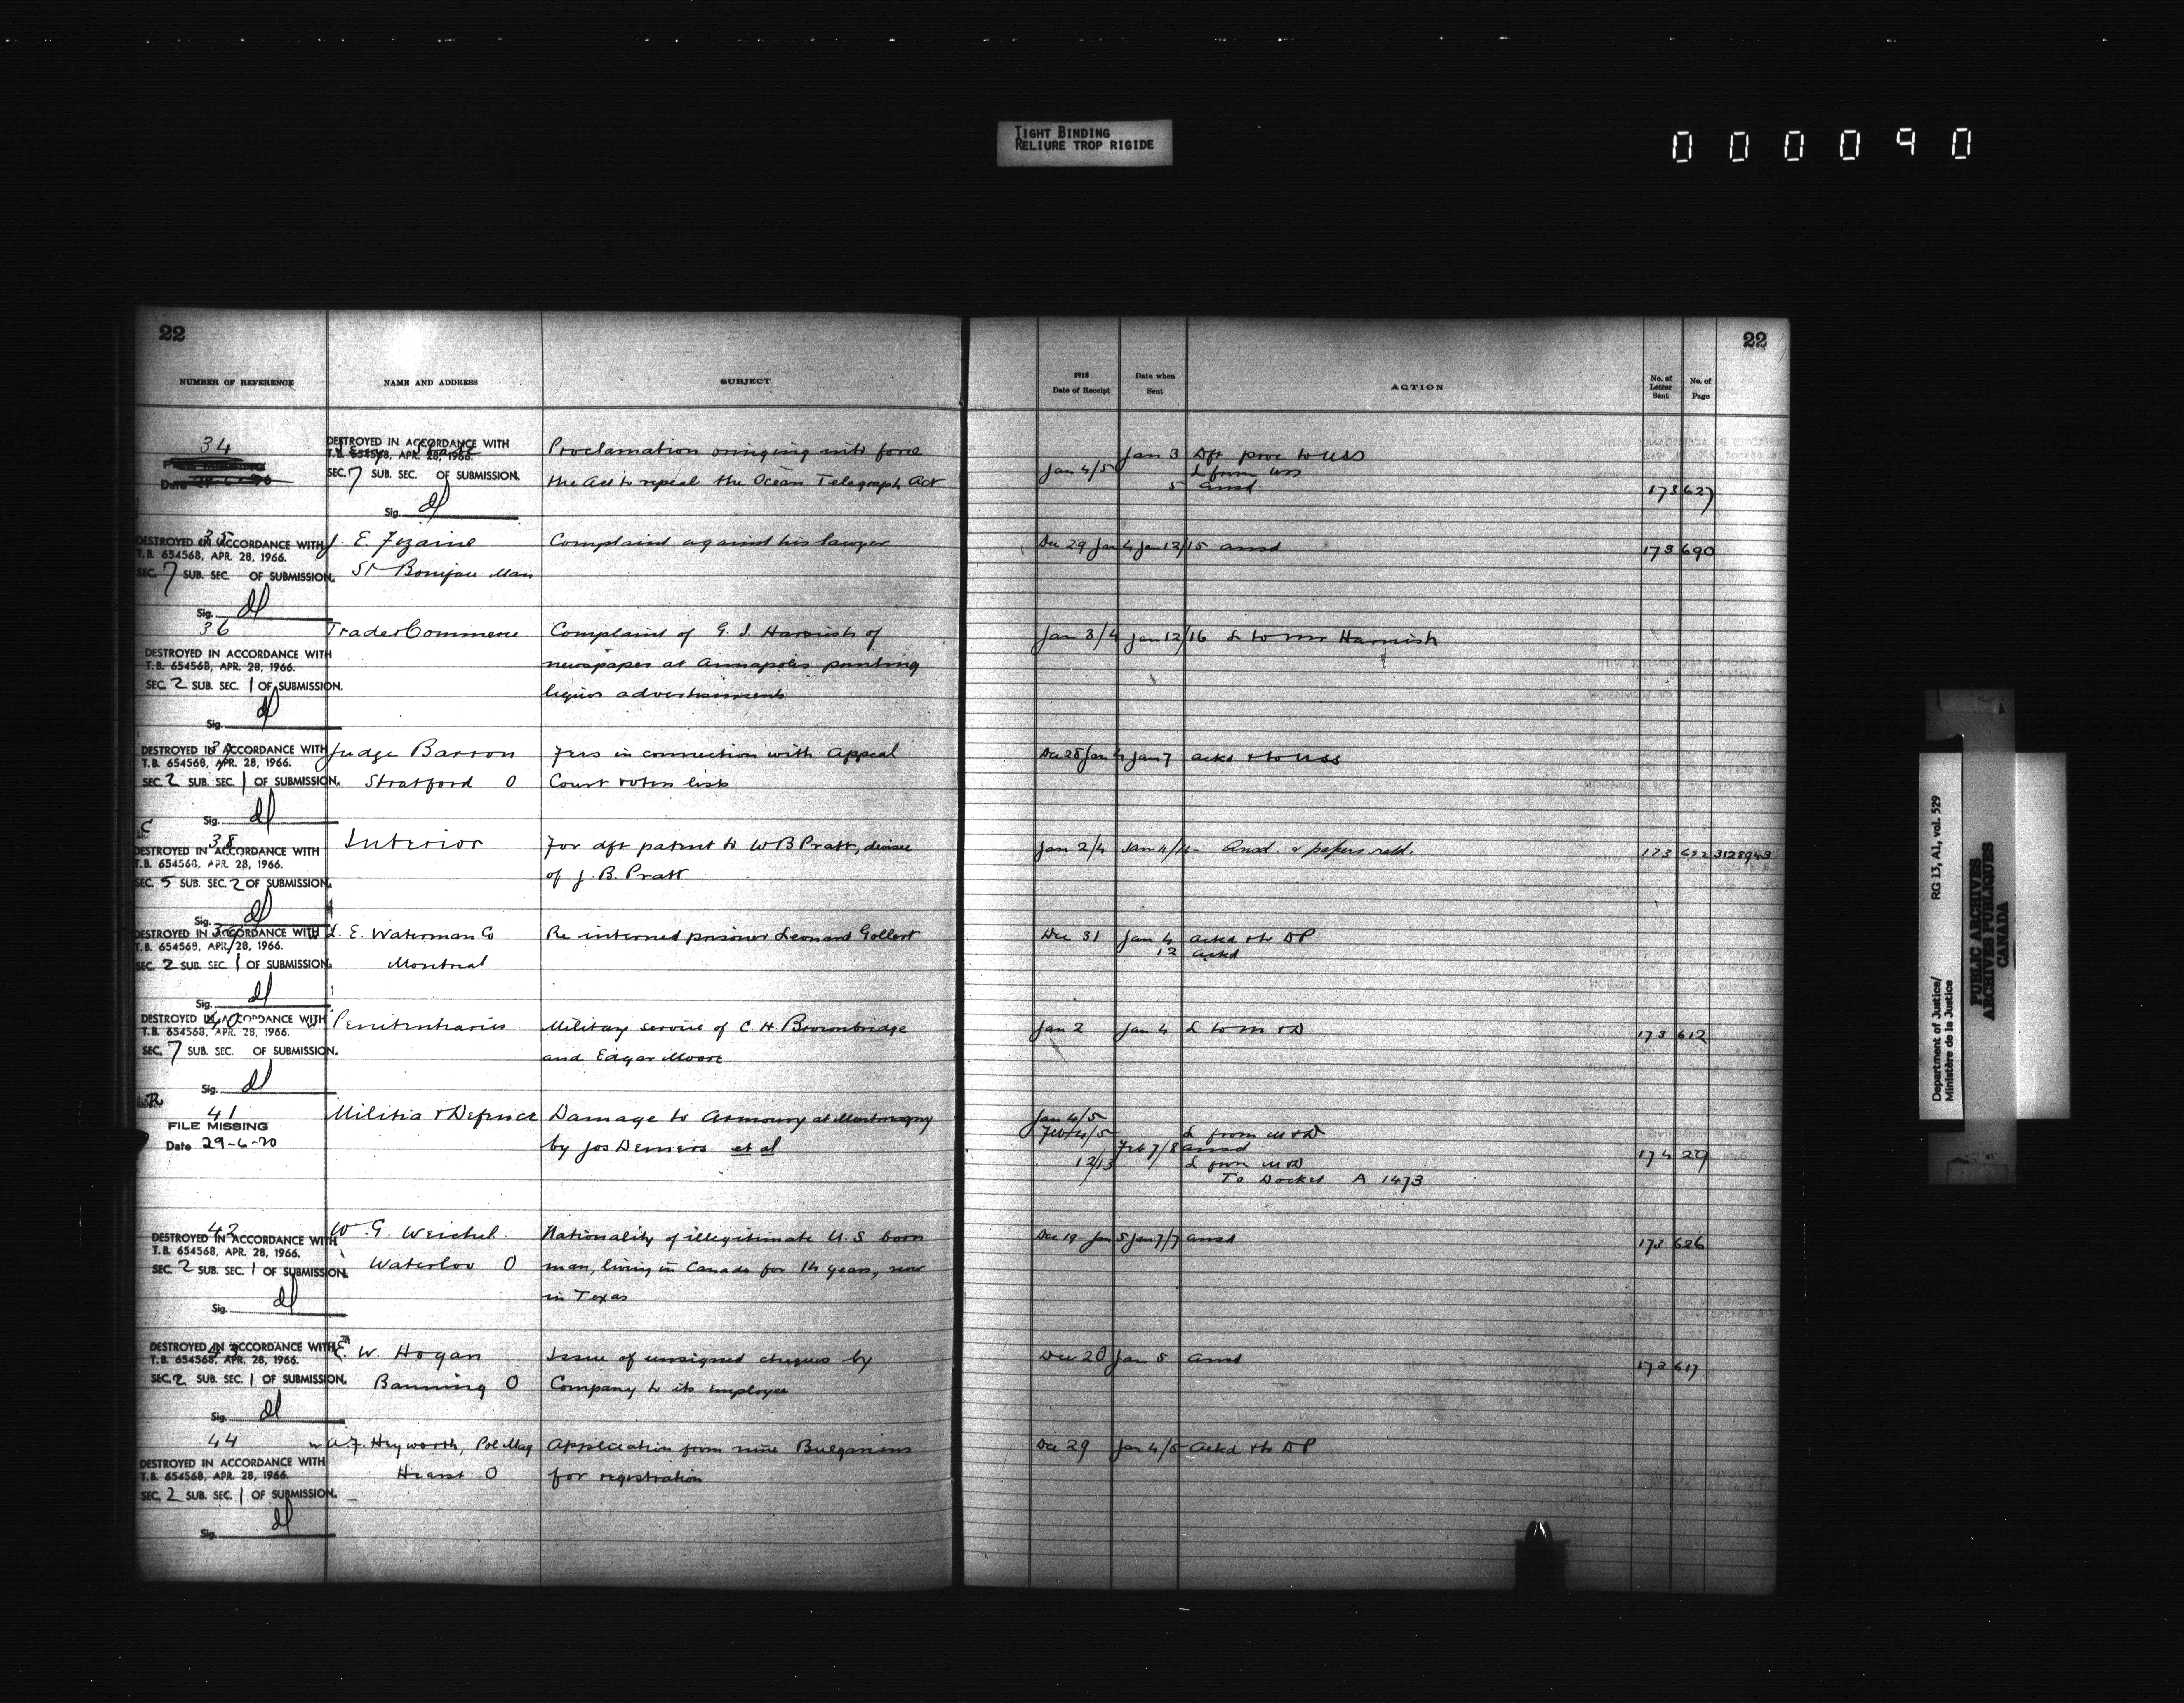 TIGHT BINDING
RELIURE TROP RIGIDE
000090
22
NUMBER OF REFERENCE NAME AND ADDRESS SUBJECT
1918
Date of Receipt Date when Sent ACTION No. of Letter Sent No. of Page
22
34
Date
DESTROYED IN ACCORDANCE WITH
T.B. 654568, APR. 28, 1966.
SEC. 7 SUB. SEC. OF SUBMISSION.
Sig. dl
Proclamation bringing into force
the Act to repeal the Ocean Telegraph Act
Jan 3 Dft proc to USS
Jan 4/5 L from USS
5 ansd 173 627
35
DESTROYED IN ACCORDANCE WITH
T.B. 654568, APR. 28, 1966.
SEC. 7 SUB. SEC. OF SUBMISSION.
Sig. dl
J. E. Fezaine
St Boniface Man
Complaint against his lawyer
Dec 29 Jan 4 Jan 12/15 ansd 173 690
36
DESTROYED IN ACCORDANCE WITH
T.B. 654568, APR. 28, 1966.
SEC. 2 SUB. SEC. 1 OF SUBMISSION.
Sig. dl
Trade & Commerce
Complaint of G. I. Harnish of
newspaper at Annapolis printing
liquor advertisements
Jan 3/4 Jan 12/16 L to Mr Harnish
37
DESTROYED IN ACCORDANCE WITH
T.B. 654568, APR. 28, 1966.
SEC. 2 SUB. SEC. 1 OF SUBMISSION.
Sig. dl
Judge Barron
Stratford O
Fees in connection with Appeal
Court voters lists
Dec 28 Jan 4 Jan 7 ackd & to USS
C
38
DESTROYED IN ACCORDANCE WITH
T.B. 654568, APR. 28, 1966.
SEC. 5 SUB. SEC. 2 OF SUBMISSION.
Sig. dl
Interior
For dft patent to W B Pratt, devisee
of J. B. Pratt
Jan 2/4 Ansd. & papers retd. 173 3128943
39
DESTROYED IN ACCORDANCE WITH
T.B. 654568, APR. 28, 1966.
SEC. 2 SUB. SEC. 1 OF SUBMISSION.
Sig. dl
L. E. Waterman Co
Montreal
Re interned prisoner Leonard Gollert
Dec 31 Jan 4 ackd & to DP
12 ackd
40
DESTROYED IN ACCORDANCE WITH
T.B. 654568, APR. 28, 1966.
SEC. 7 SUB. SEC. OF SUBMISSION.
Sig. dl
Penitentiaries
Military service of C. H. Brownbridge
and Edgar Moore
Jan 2 Jan 4 L to M & D 173 612
41
FILE MISSING
Date 29-6-70
Militia & Defence
Damage to Armoury at Montmagny
by Jos Demers et al
Jan 4/5
Feb 4/5 L from M & D
Feb 7/8 ansd 174 29
12/13 L from M & D
To Docket A 1473
42
DESTROYED IN ACCORDANCE WITH
T.B. 654568, APR. 28, 1966.
SEC. 2 SUB. SEC. 1 OF SUBMISSION.
Sig. dl
W. G. Weichel
Waterloo O
Nationality of illegitimate U.S born
man, living in Canada for 14 years, now
in Texas
Dec 19 - Jan 5 Jan 7/7 ansd 173 626
43
DESTROYED IN ACCORDANCE WITH
T.B. 654568, APR. 28, 1966.
SEC. 2 SUB. SEC. 1 OF SUBMISSION.
Sig. dl
E. W. Hogan
Banning O
Issue of unsigned cheques by
Company to its employee
Dec 20 Jan 5 Ansd 173 617
44
DESTROYED IN ACCORDANCE WITH
T.B. 654568, APR. 28, 1966.
SEC. 2 SUB. SEC. 1 OF SUBMISSION.
Sig. dl
A. F. Heyworth, Pol Mag
Hearst O
Application from nine Bulgarians
for registration
Dec 29 Jan 4/5 Ackd & to DP
Department of Justice/ RG 13, A1, vol. 529
Ministère de la Justice
PUBLIC ARCHIVES
ARCHIVES PUBLIQUES
CANADA